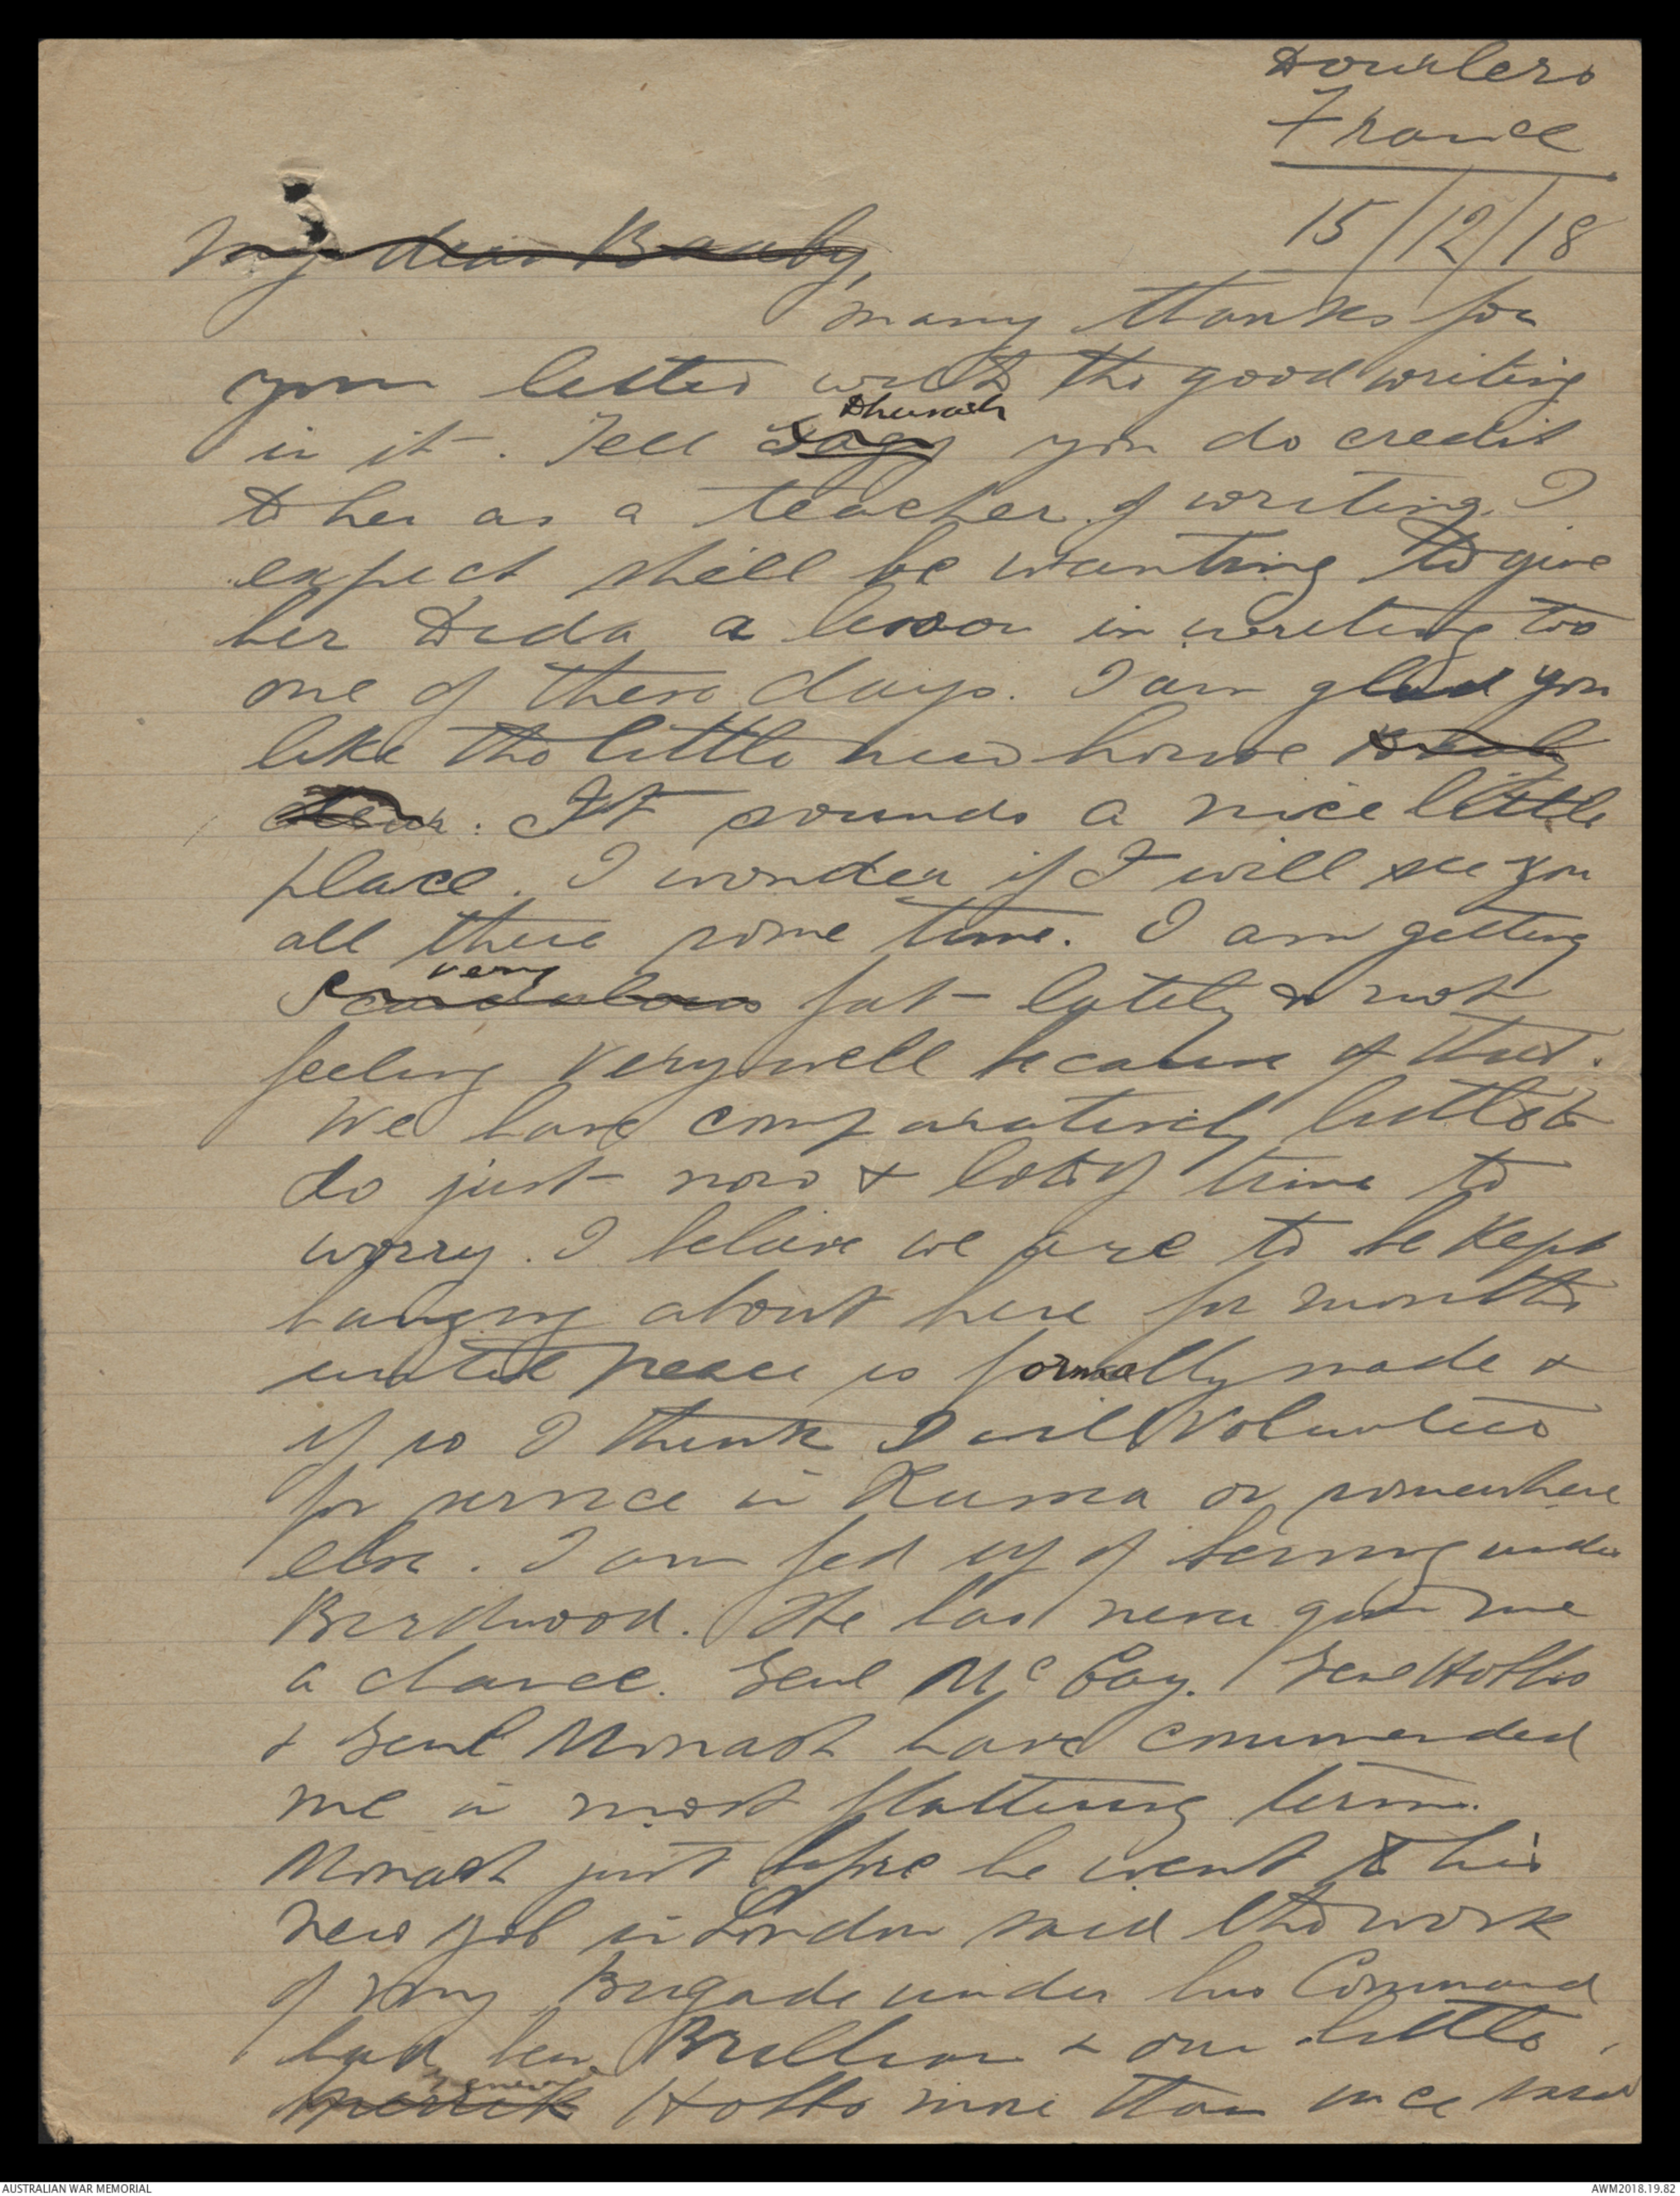 Dourlers
France
15/12/18
My dear Baaby,
many thanks for
your letter with the good writing
in it. Tell you do credit
to her as a teacher of writing. I
expect she'll be wanting to give
her Dida a lesson in writing too
one of these days. I am glad you
like the little new house
dear. It sounds a nice little
place. I wonder if I will see you
all there some time. I am getting
very
Scandalous fat lately & not
feeling very well because of that.
We have comparatively little to
do just now & lots of time to
worry. I beleive we are to be kept
hanging about here for months
until peace is formally made &
if so I think I will volunteer
for service in Russia or somewhere
else. I am fed up of serving under
Birdwood. He has never given me
a chance. Genl McCay. Genl Hobbs
& Genl Monash have commended
me in most flattering terms.
Monash just before he went to his
new job in London said the work
of my Brigade under his Command
had been Brilliant & our little
Hobbs more than once said
AUSTRALIAN WAR MEMORIAL
AWM2018.19.82